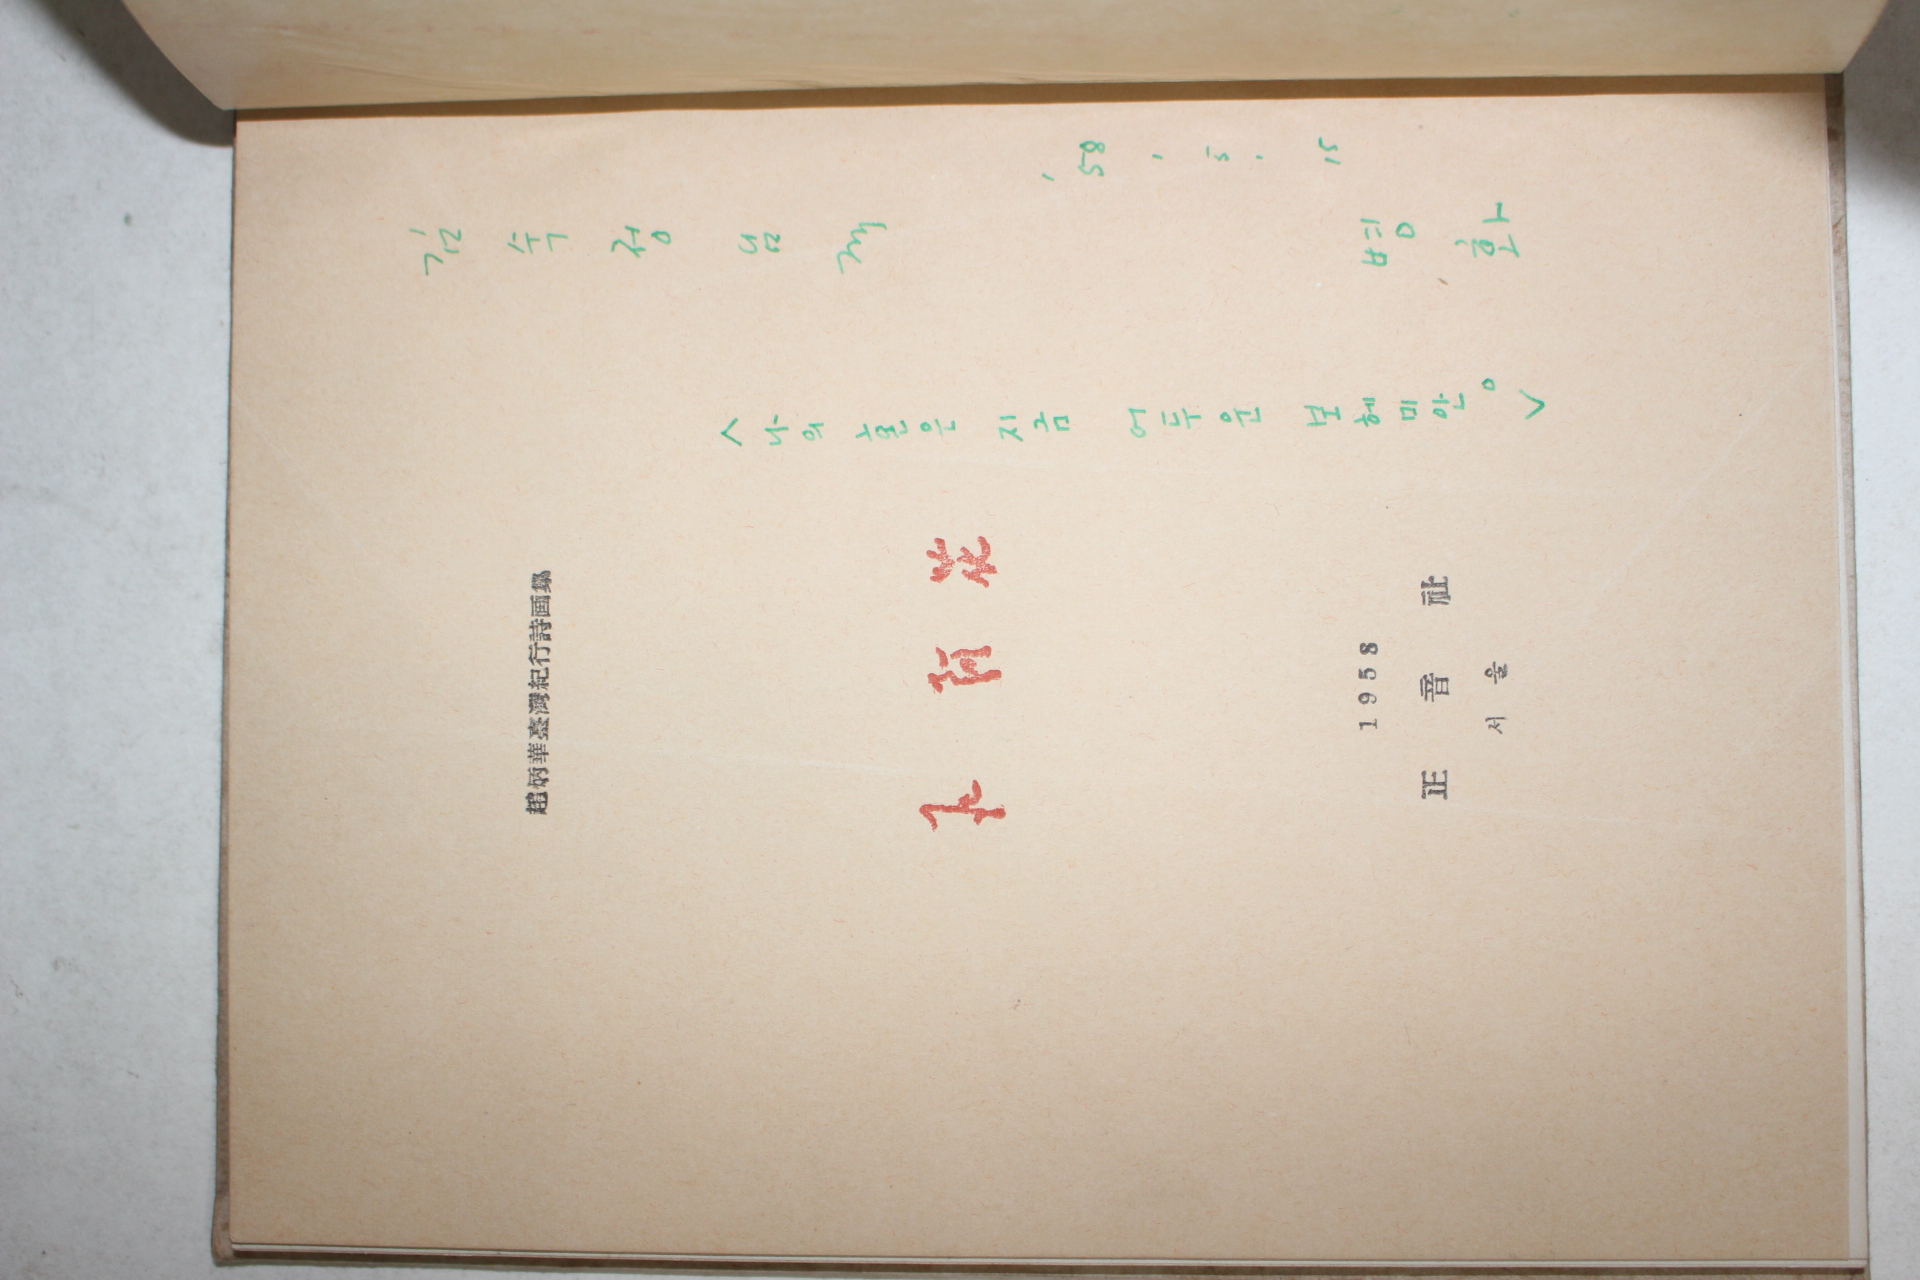 김수정 님께
'58. 5. 15
병화
<나의 혼은 지금 어두운 보헤미안。>
趙炳華臺灣紀行詩画錄
石阿花
1958
正音社
서울